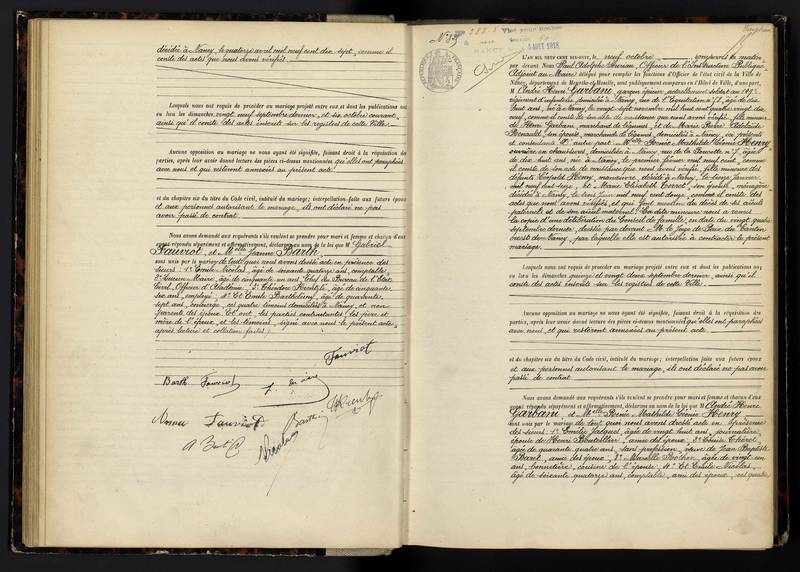 décédée à Nancy, le quatorze avril mil neuf cent dix sept, comme il
conste des actes que nous avons vérifiés.
Lesquels nous ont requis de procéder au mariage projeté entre eux et dont les publications ont
eu lieu les dimanches vingt neuf septembre dernier, et six octobre courant,
ainsi qu'il conste des actes inscrits sur les registres de cette Ville.
Aucune opposition au mariage ne nous ayant été signifiée, faisant droit à la réquisition des
parties, après leur avoir donné lecture des pièces ci-dessus mentionnées qu'elles ont paraphées
avec nous et qui resteront annexées au présent acte
et du chapitre six du titre du Code civil, intitulé du mariage; interpellation faite aux futurs époux
et aux personnes autorisant le mariage, ils ont déclaré ne pas
avoir passé de contrat
Nous avons demandé aux requérants s'ils veulent se prendre pour mari et femme et chacun d'eux
ayant répondu séparément et affirmativement, déclarons au nom de la loi que M. Gabriel
Fauvrot, et Melle Jeanne Barth
sont unis par le mariage de tout quoi nous avons dressé acte en présence des
sieurs: 1° Emile Nicolas, âgé de soixante quatorze ans, comptable,
âgé de cinquante un ans, Chef de Bureau de l'Etat
Civil, Officier d'Académie; 3° Théodore âgé de cinquante
six ans, employé; 4° Et Emile Barthélemy, âgé de quarante
sept ans, ces quatre témoins domiciliés à Nancy, et non
parents des époux. Et ont, les parties contractantes, les père et
mère de l'époux et les témoins, signé avec nous le présent acte,
après lecture et collation faites.
Fauvrot
Barth Fauvrot
Fauvrot
Nicolas
N° 19
5 AOUT 1918
L'AN MIL NEUF CENT DIX-HUIT, le neuf octobre, comparants du matin,
par devant Nous Paul Adolphe Officier de l'Instruction Publique
Adjoint au Maire délégué pour remplir les fonctions d'Officier de l'état civil de la Ville de
Nancy, département de Meurthe-et-Moselle, sont publiquement comparus en l'Hôtel de Ville, d'une part,
M. André Henri Garbani, garçon épicier, actuellement soldat au
régiment d'infanterie, domicilié à Nancy, rue de l'Equitation n° âgé de dix
huit ans, né à Nancy le vingt sept novembre mil huit cent quatre vingt dix
neuf, comme il conste de son acte de naissance que nous avons vérifié, fils mineur
de Henri Garbani, marchand de légumes, et de Marie Adélaïde
Renauld, son épouse, marchande de légumes, domiciliés à Nancy, ici présents
et consentants. D'autre part Melle Irénée Mathilde Cécile Henry
ouvrière en chaussures, domiciliée à Nancy, rue de la âgée
de dix huit ans, née à Nancy, le premier février mil neuf cent, comme
il conste de son acte de naissance que nous avons vérifié, fille mineure des
défunts Léopold Henry, manœuvre, décédé à Nancy, le treize janvier
mil neuf cent sept, et Marie Elisabeth son épouse, ménagère
décédée à Nancy, comme il conste des
actes que nous avons vérifiés, et qui font mention du décès de ses aïeuls
paternels et de son aïeul maternel. Ladite mineure nous a remis
la copie d'une délibération du Conseil de famille, en date du vingt quatre
septembre dernier, dressée par devant M. le Juge de Paix du Canton
ouest de Nancy, par laquelle elle est autorisée à contracter le présent
mariage.
Lesquels nous ont requis de procéder au mariage projeté entre eux et dont les publications ont
eu lieu les dimanches quinze et vingt deux septembre dernier, ainsi qu'il
conste des actes inscrits sur les registres de cette Ville.
Aucune opposition au mariage ne nous ayant été signifiée, faisant droit à la réquisition des
parties, après leur avoir donné lecture des pièces ci-dessus mentionnées qu'elles ont paraphées
avec nous, et qui resteront annexées au présent acte
et du chapitre six du titre du Code civil, intitulé du mariage; interpellation faite aux futurs époux
et aux personnes autorisant le mariage, ils ont déclaré ne pas avoir
passé de contrat
Nous avons demandé aux requérants s'ils veulent se prendre pour mari et femme et chacun d'eux
ayant répondu séparément et affirmativement, déclarons au nom de la loi que M. André Henri
Garbani, et Melle Irénée Mathilde Cécile Henry
sont unis par le mariage de tout quoi nous avons dressé acte en présence
des sieurs: 1° Emilie Jacquel, âgée de vingt huit ans, journalière,
épouse de Henri amie des époux; 2° Louise
âgée de quarante quatre ans, sans profession, veuve de Jean Baptiste
amie des époux; 3° Marcelle âgée de vingt un
ans, bonnetière, cousine de l'épouse, 4° Et Emile Nicolas,
âgé de soixante quatorze ans, comptable, ami des époux, ces quatre